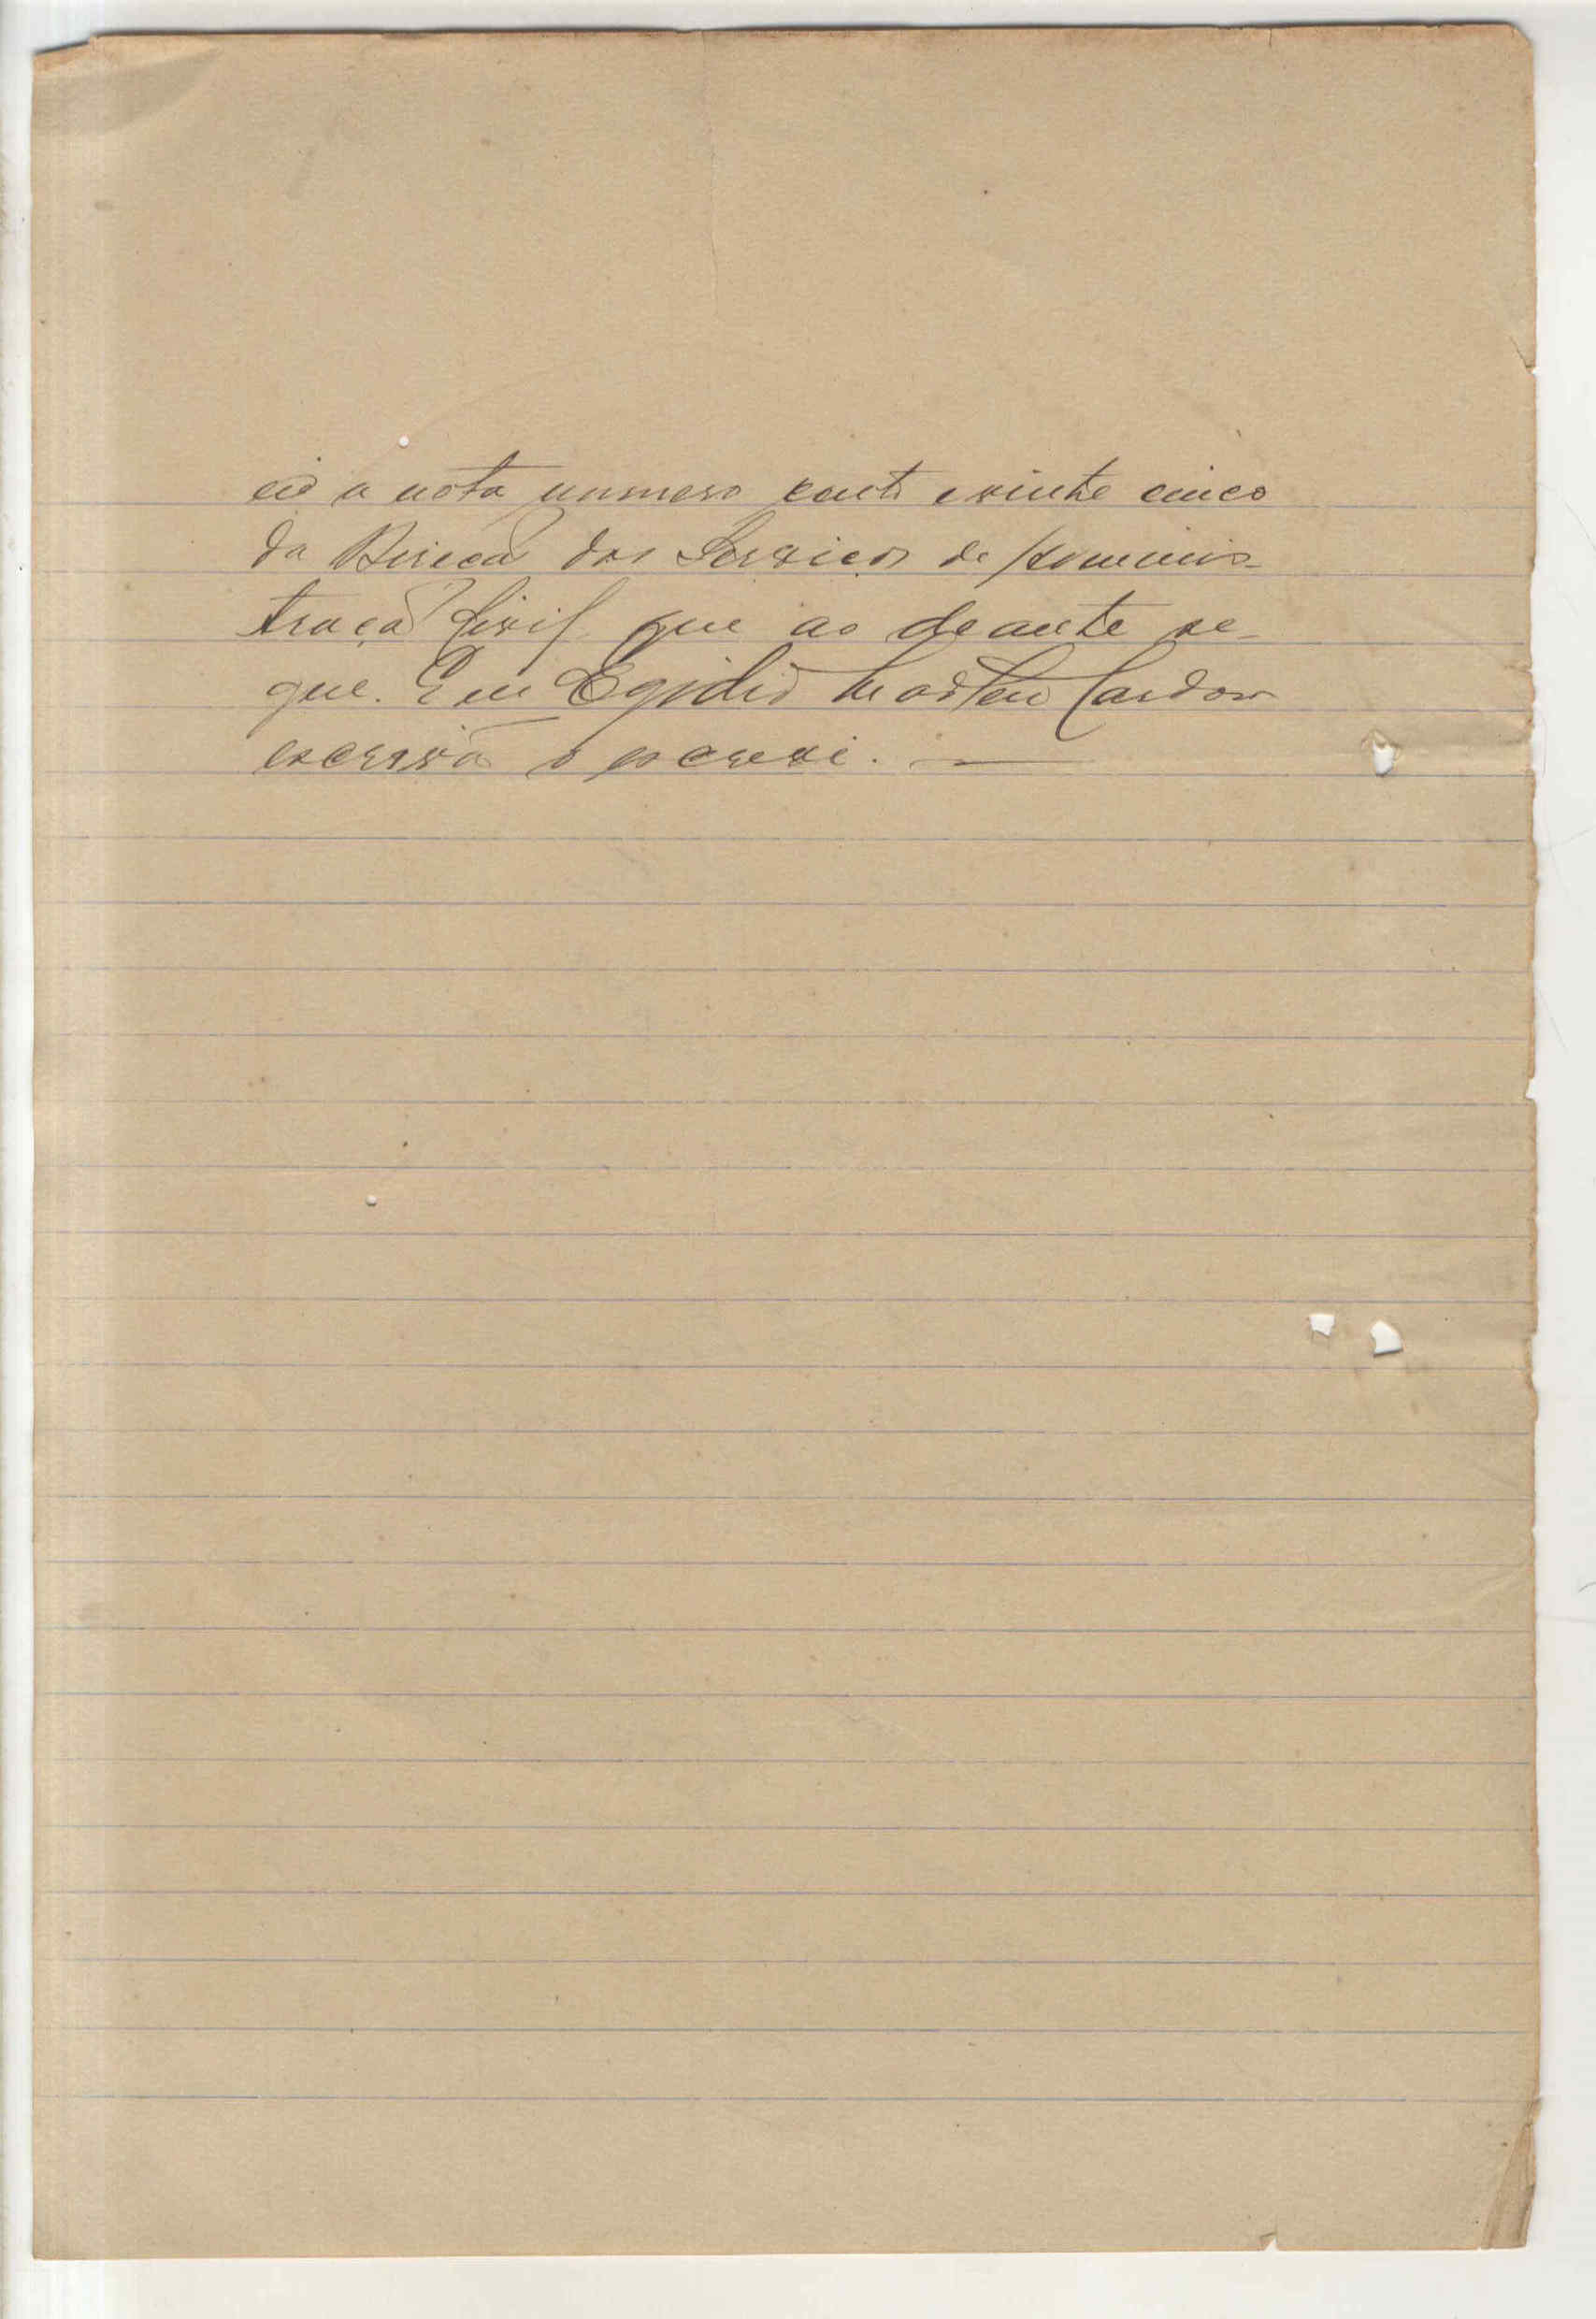 cio a nota numero cento e vinte cinco
da Direcão dos Serviços de Adminis-
tração Civil que ao deante se-
gue. Eu Egidio Cardoso
escrivão o escrevi.